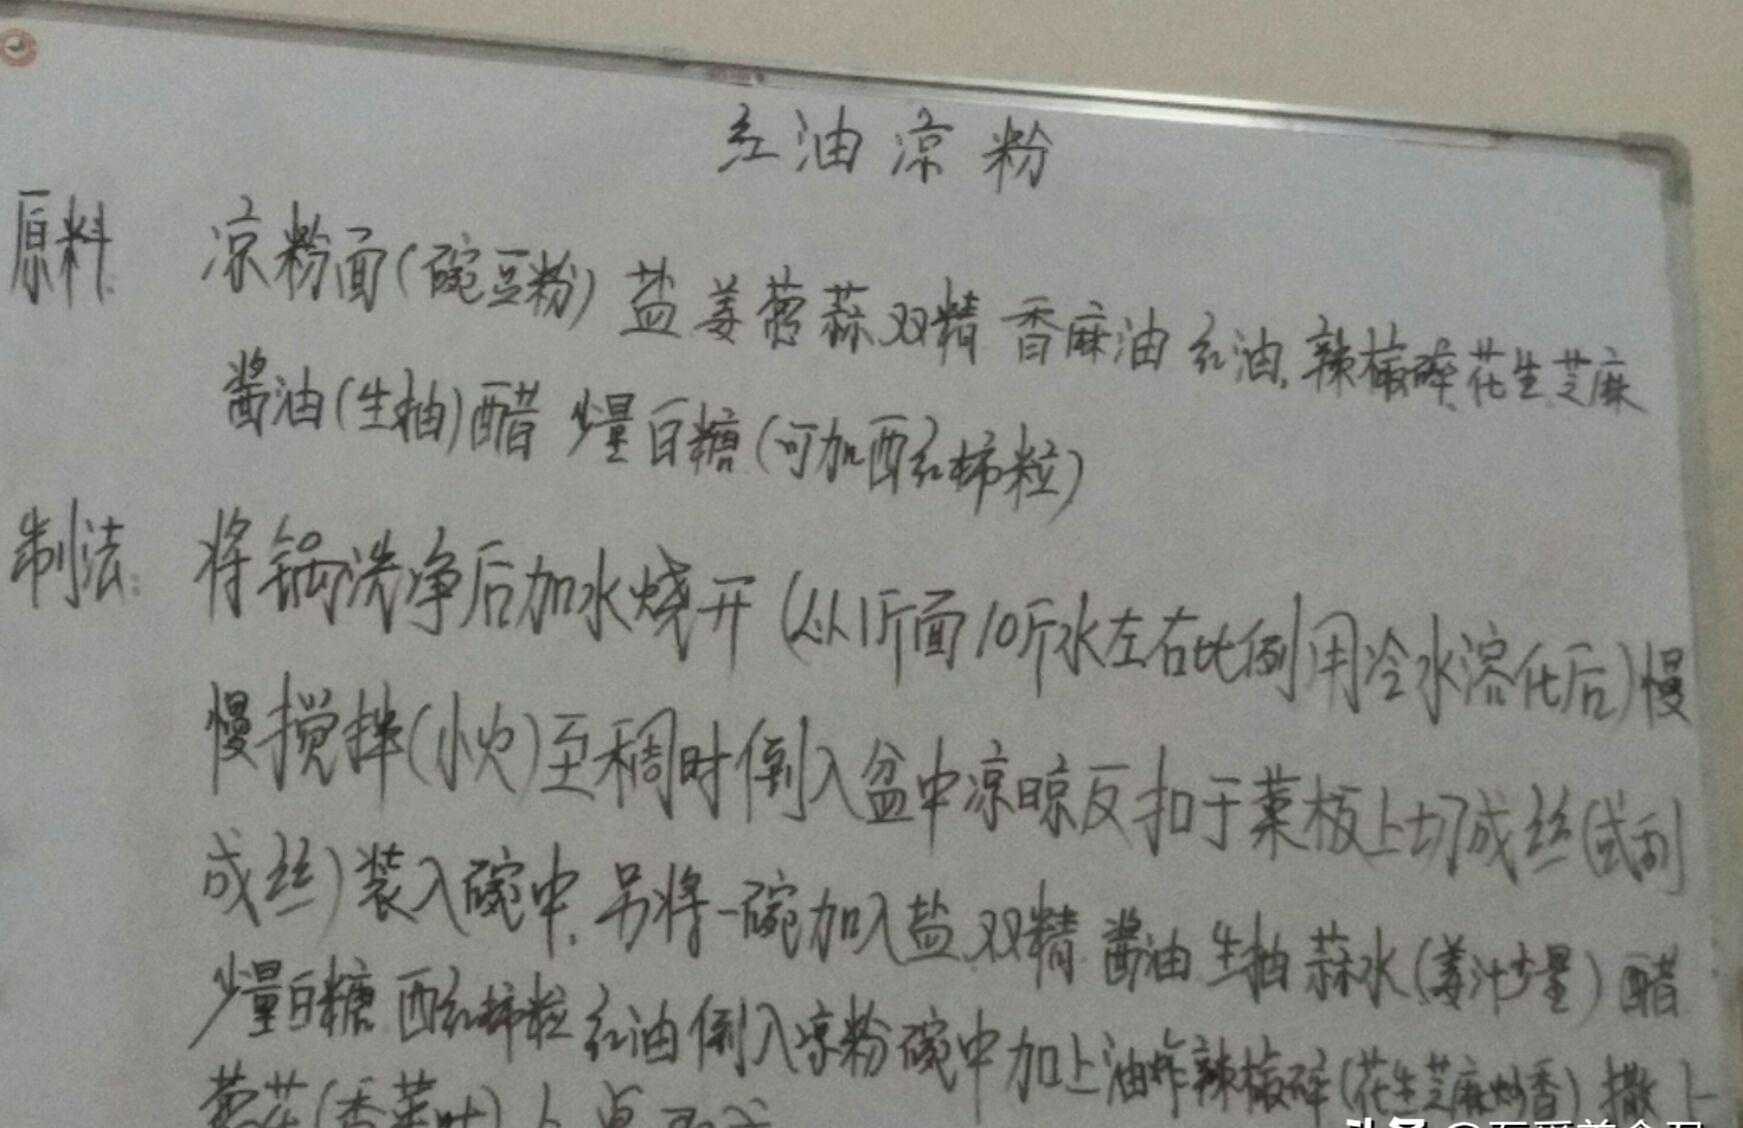 红油凉粉
原料: 凉粉面(碗豆粉) 盐 姜 葱 蒜 双精 香麻油 红油, 辣椒碎 花生 芝麻
酱油(生抽) 醋 少量白糖 (可加西红柿粒)
制法: 将锅洗净后加水烧开 (以1斤面10斤水左右比例用冷水溶化后) 慢
慢搅拌(小火)至稠时倒入盆中凉晾反扣于菜板上切成丝(或刮
成丝)装入碗中, 另将一碗加入盐 双精 酱油 生抽 蒜水(姜汁少量) 醋
少量白糖 西红柿粒 红油 倒入凉粉碗中加上油炸辣椒碎(花生芝麻炒香) 撒上
葱花(香菜叶)上桌即可
头条